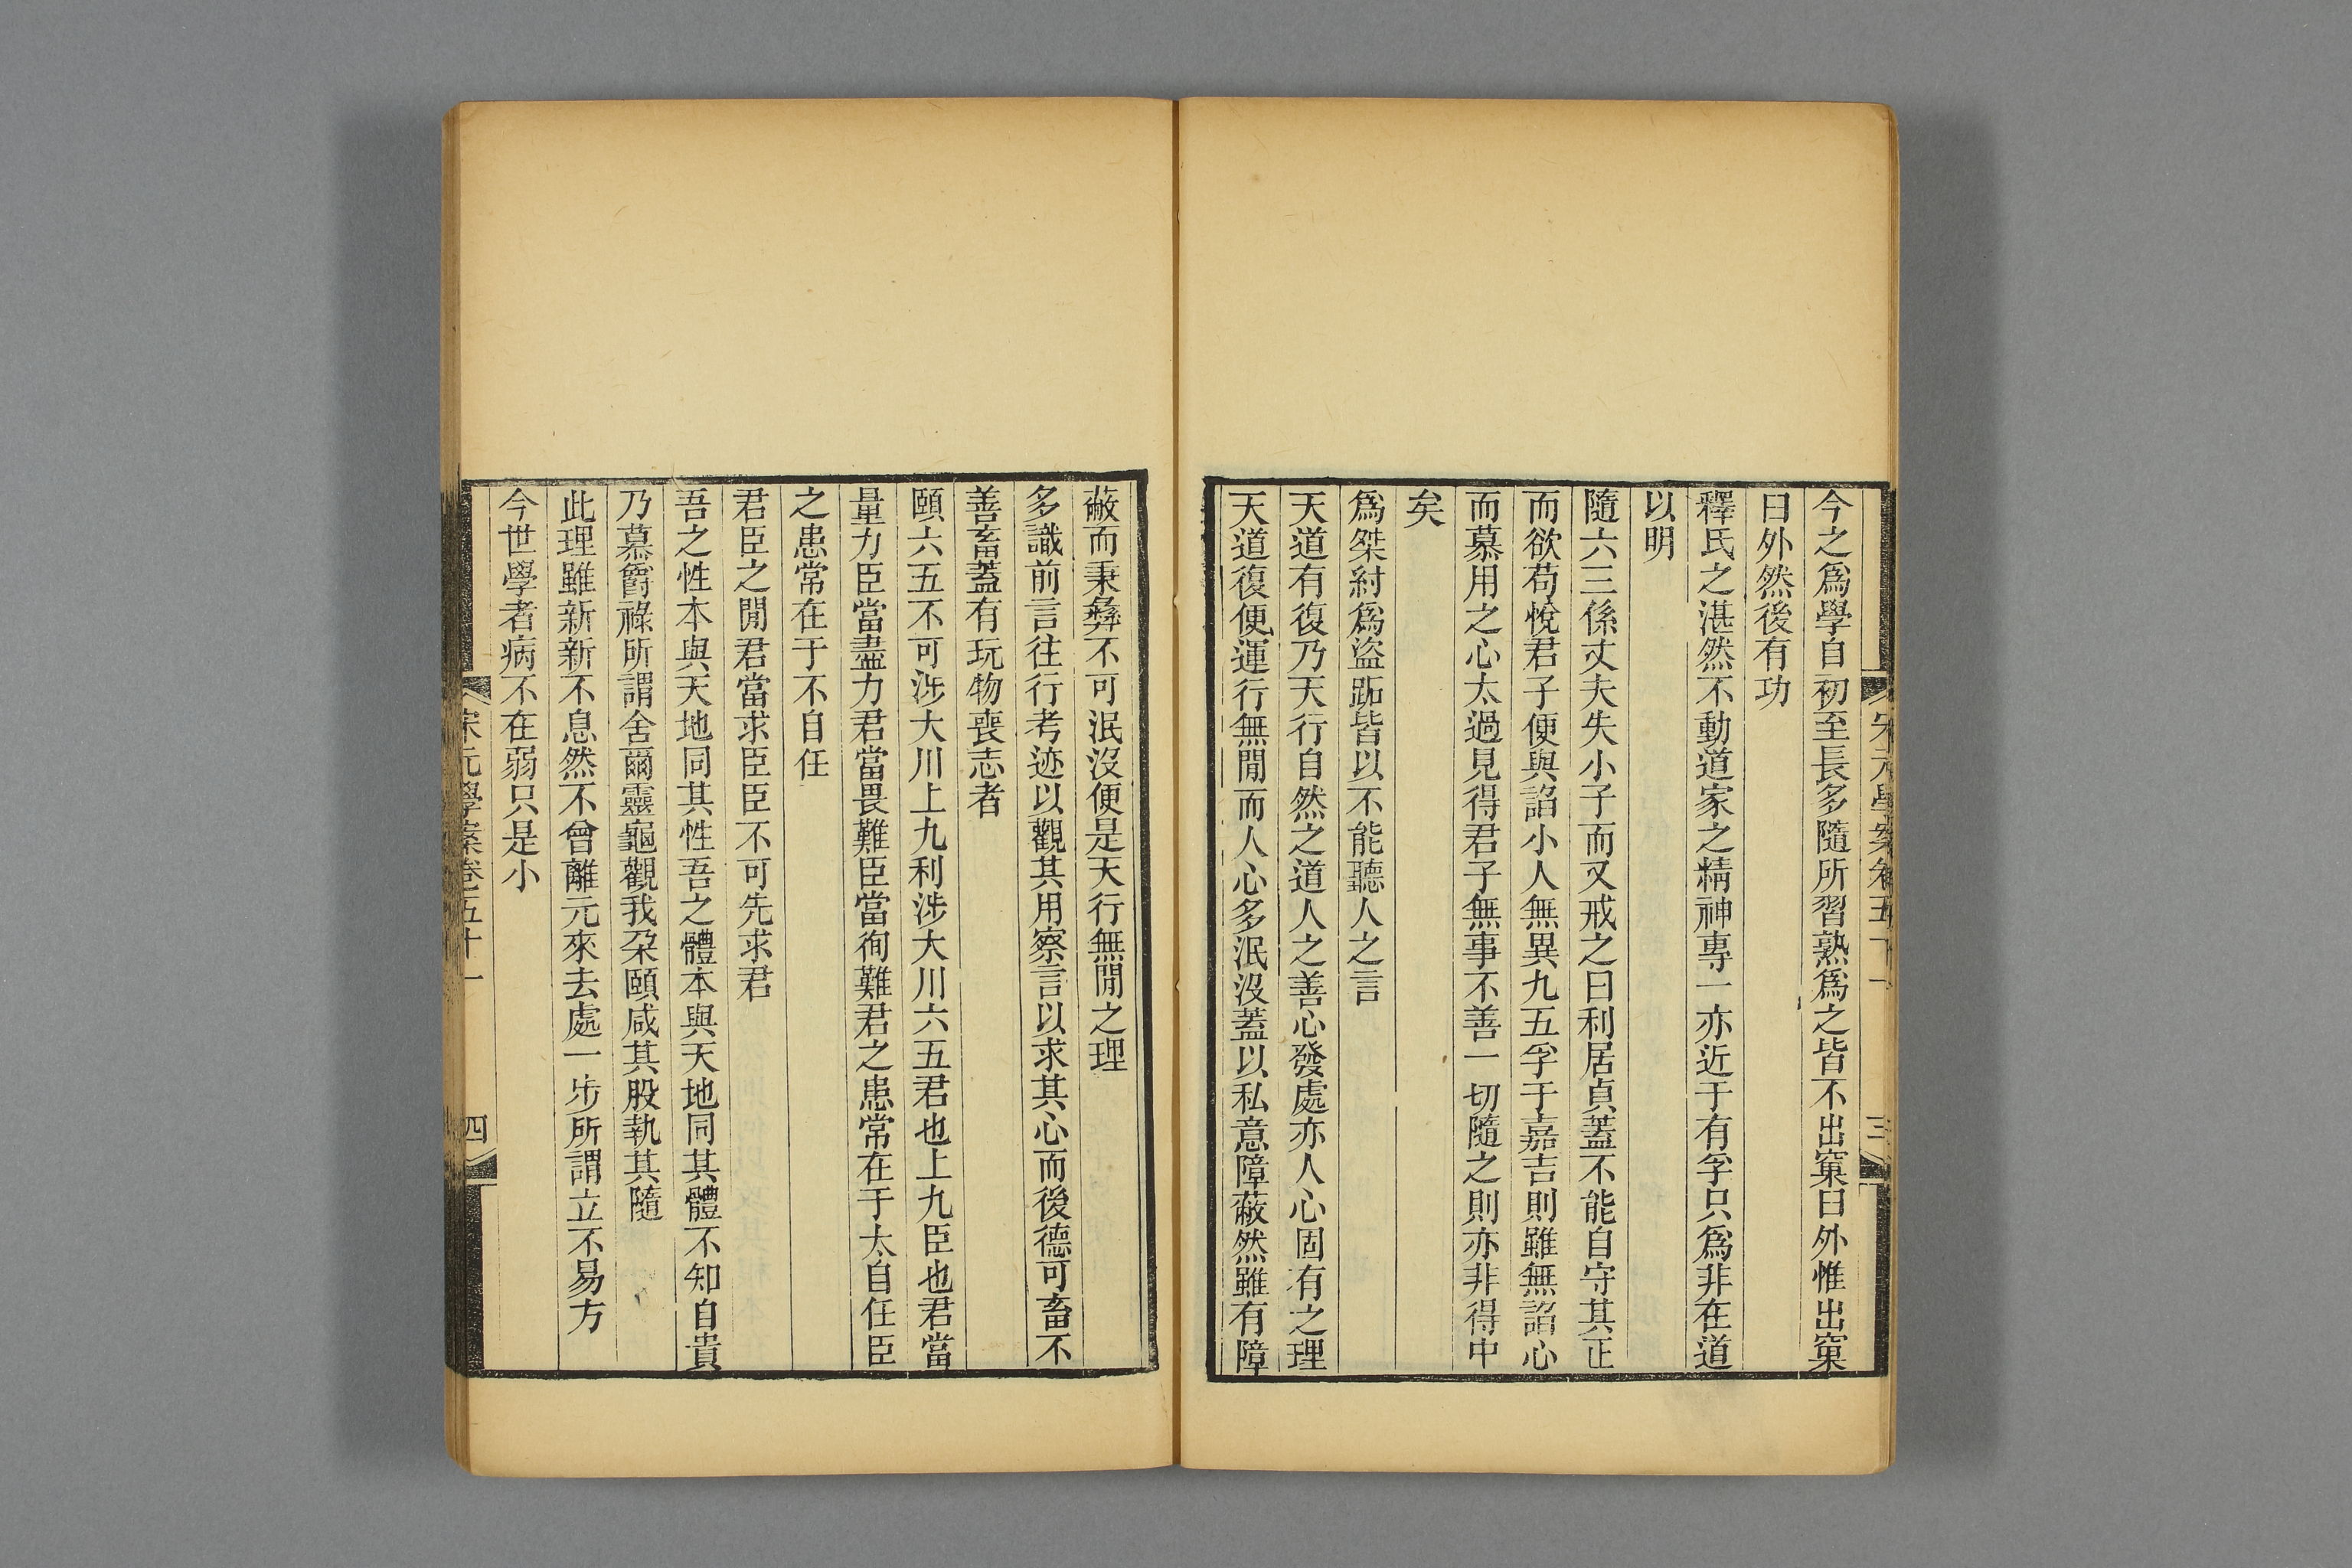 宋元學案卷五十一 三
今之爲學自初至長多隨所習熟爲之皆不出窠臼外惟出窠
臼外然後有功
釋氏之湛然不動道家之精神專一亦近于有孚只爲非在道
以明
隨六三係丈夫失小子而又戒之曰利居貞蓋不能自守其正
而欲苟悅君子便與諂小人無異九五孚于嘉吉則雖無諂心
而慕用之心太過見得君子無事不善一切隨之則亦非得中
矣
爲桀紂爲盜跖皆以不能聽人之言
天道有復乃天行自然之道人之善心發處亦人心固有之理
天道復便運行無閒而人心多泯沒蓋以私意障蔽然雖有障
蔽而秉彝不可泯沒便是天行無閒之理
多識前言往行考迹以觀其用察言以求其心而後德可畜不
善畜蓋有玩物喪志者
頤六五不可涉大川上九利涉大川六五君也上九臣也君當
量力臣當盡力君當畏難臣當徇難君之患常在于太自任臣
之患常在于不自任
君臣之閒君當求臣臣不可先求君
吾之性本與天地同其性吾之體本與天地同其體不知自貴
乃慕爵祿所謂舍爾靈龜觀我朶頤咸其股執其隨
此理雖新新不息然不曾離元來去處一步所謂立不易方
今世學者病不在弱只是小
宋元學案卷五十一 四